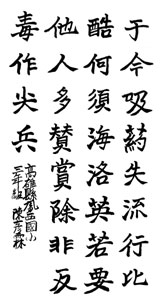 于今吸葯失流行比
酷何須海洛英若要
他人多贊賞除非反
毒作尖兵
高雄縣國小
三年級 陳彥霖